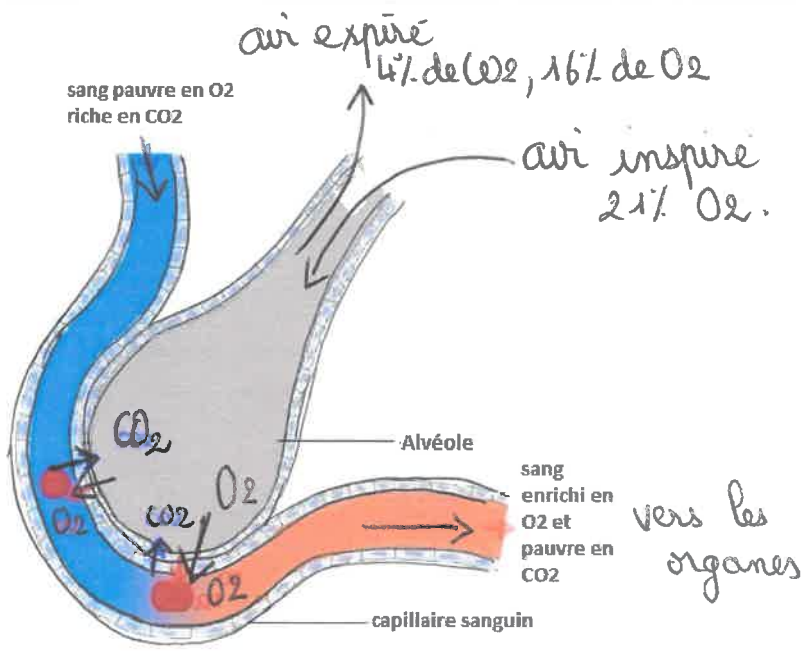 air expiré
4% de CO2, 16% de O2
sang pauvre en O2
riche en CO2
air inspire
21% O2.
CO2
O2
CO2
O2
O2
Alvéole
sang
enrichi en
O2 et
pauvre en
CO2
vers les
organes
capillaire sanguin